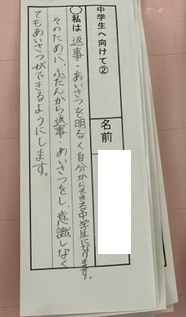 中学生へ向けて②
名前
私は返事・あいさつを明るく自分からできる中学生になります。
そのために、ふだんから返事・あいさつをし、意識しなく
てもあいさつができるようにします。